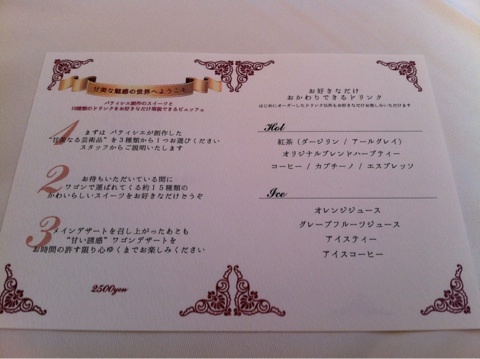 甘美な魅惑の世界へようこそ
パティシエ創作のスイーツと
10種類のドリンクをお好きなだけ堪能できるビュッフェ
1
まずは パティシエが創作した
"甘美なる芸術品"を3種類から1つお選びください
スタッフからご説明いたします
2
お待ちいただいている間に
ワゴンで運ばれてくる約15種類の
かわいらしいスイーツをお好きなだけどうぞ
3
メインデザートを召し上がったあとも
"甘い誘惑"ワゴンデザートを
お時間の許す限り心ゆくまでお楽しみください
2500yen
お好きなだけ
おかわりできるドリンク
はじめにオーダーしたドリンク以外もお好きなだけお楽しみいただけます
Hot
紅茶(ダージリン / アールグレイ)
オリジナルブレンドハーブティー
コーヒー / カプチーノ / エスプレッソ
Ice
オレンジジュース
グレープフルーツジュース
アイスティー
アイスコーヒー